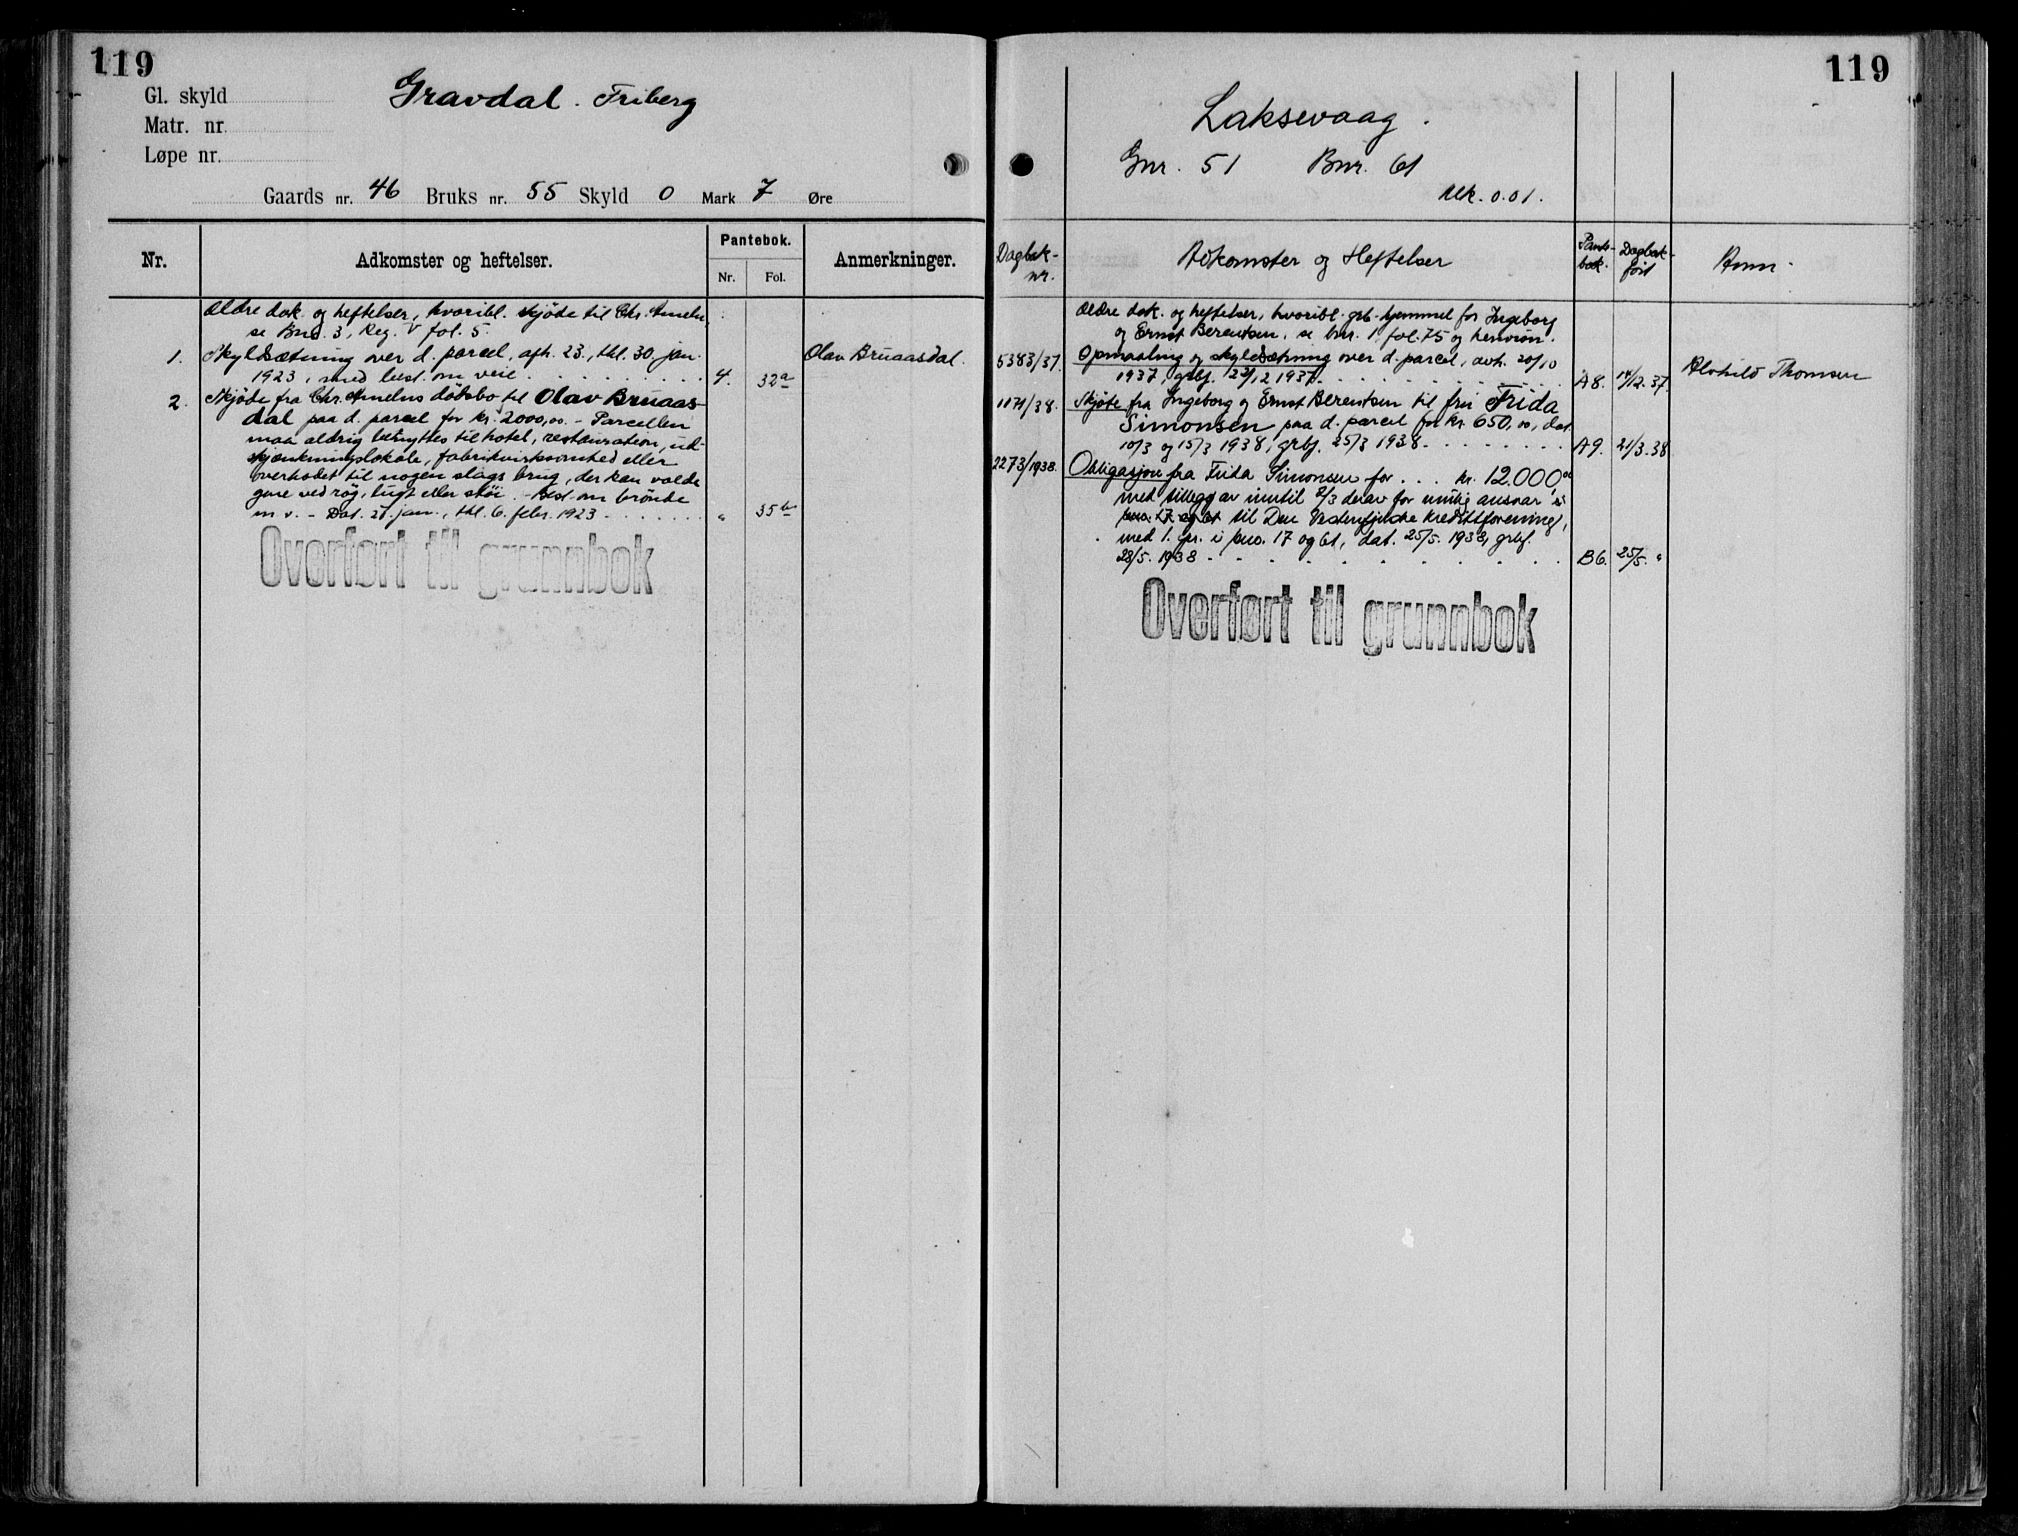 119
Gl. skyld
Matr. nr.
Løpe nr.
Gravdal. Friberg
Gaards nr. 46 Bruks nr. 55 Skyld 0 Mark 7 Øre
Nr.
Adkomster og heftelser.
Pantebok.
Nr. Fol.
Anmerkninger.
Ældre dok. og heftelser, hvoribl. skjøde til Chr. Ameln,
se Bno. 3, Reg. V fol. 5.
1. Skyldsætning over d. parcel, afh. 23., thl. 30. jan. Olav Bruaasdal.
1923, med best. om veie 4. 32a
2. Skjøde fra Chr. Amelns dødsbo til Olav Bruaas-
dal paa d. parcel for kr. 2000,00. - Parcellen
maa aldrig benyttes til hotel, restauration, ud-
skjænkningslokale, fabrikvirksomhed eller
overhodet til nogen slags brug, der kan volde
gene ved røg, lugt eller støi. - Best. om brønde
m v. - Dat. 27. jan., thl. 6. febr. 1923 " 35b
Overført til grunnbok
119
Laksevaag.
Gnr. 51 Bnr. 61
Mk. 0.01.
Dagbok-
nr.
Adkomster og Heftelser
Pante-
bok.
Dagbok-
ført
Anm.
Ældre dok. og heftelser, hvoribl. grb. hjemmel for Ingeborg
og Ernst Berentsen, se bnr. 1. fol. 75 og henvisn.
5383/37. Opmaaling og skyldsætning over d. parcel, avh. 20/10
1937, grbf. 1937 A8. 14/12.37. Alvhild Thomsen
1171/38. Skjøte fra Ingeborg og Ernst Berentsen til frú Frida
Simonsen paa d. parcel for kr. 650,00, dat.
10/3 og 15/3 1938, grbf. 25/3 1938 A9. 21/3.38
2273/1938. Obligasjon fra Frida Simonsen for kr. 12.000,00
med tillegg av inntil 2/3 derav for mulig ansvar i
bno. 17 og 61 til Den Vestenfjelske Kredittforening,
med 1. pr. i bno. 17 og 61, dat. 25/5. 1938, grbf.
28/5. 1938 B6. 25/5. "
Overført til grunnbok